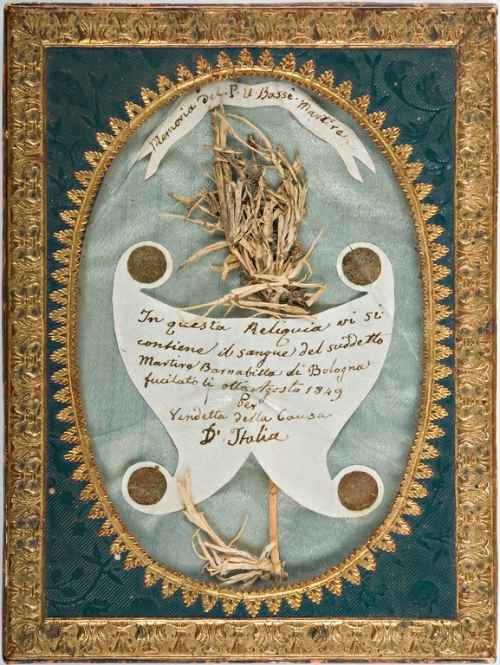 Memoria del P. U Bassi Martire
In questa Reliquia vi si
contiene il sangue del suddetto
Martire Barnabitta di Bologna
fucilato li otto Agosto 1849
Per
Vendetta della Causa
D' Italia